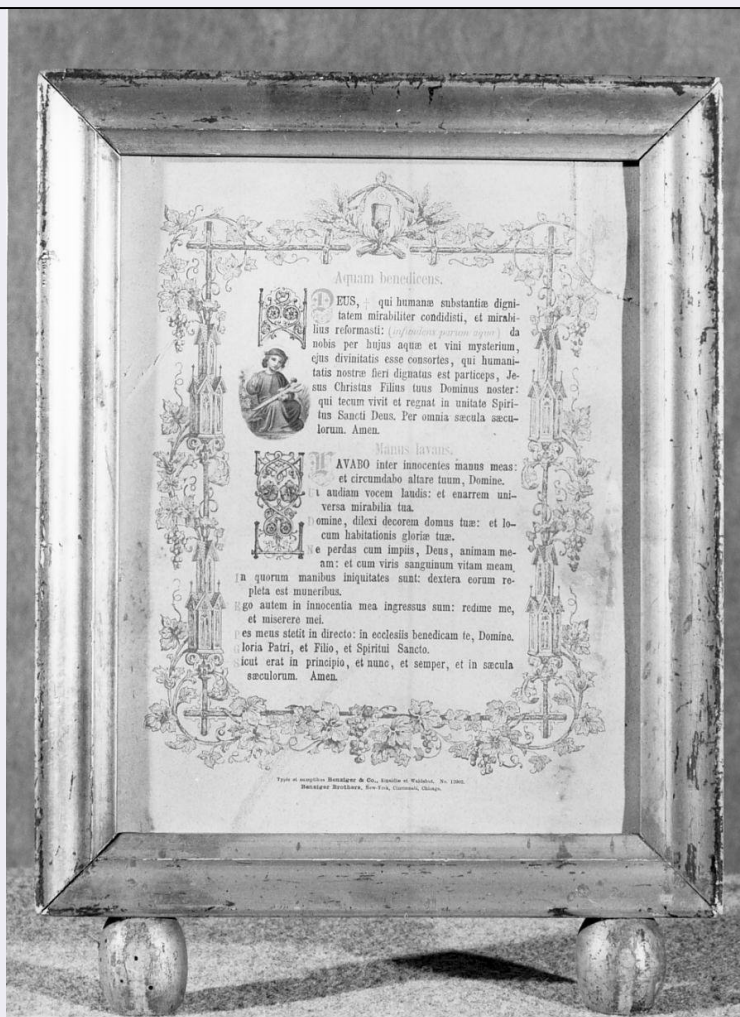 Aquam benedicens.
DEUS, † qui humanæ substantiæ digni-
tatem mirabiliter condidisti, et mirabi-
lius reformasti: (infundens parum aquæ) da
nobis per hujus aquæ et vini mysterium,
ejus divinitatis esse consortes, qui humani-
tatis nostræ fieri dignatus est particeps, Je-
sus Christus Filius tuus Dominus noster:
qui tecum vivit et regnat in unitate Spiri-
tus Sancti Deus. Per omnia sæcula sæcu-
lorum. Amen.
Manus lavans.
LAVABO inter innocentes manus meas:
et circumdabo altare tuum, Domine.
Ut audiam vocem laudis: et enarrem uni-
versa mirabilia tua.
Domine, dilexi decorem domus tuæ: et lo-
cum habitationis gloriæ tuæ.
Ne perdas cum impiis, Deus, animam me-
am: et cum viris sanguinum vitam meam.
In quorum manibus iniquitates sunt: dextera eorum re-
pleta est muneribus.
Ego autem in innocentia mea ingressus sum: redime me,
et miserere mei.
Pes meus stetit in directo: in ecclesiis benedicam te, Domine.
Gloria Patri, et Filio, et Spiritui Sancto.
Sicut erat in principio, et nunc, et semper, et in sæcula
sæculorum. Amen.
Typis et sumptibus Benziger & Co., Einsidlæ et Waldshut. No.
Benziger Brothers, New-York, Cincinnati, Chicago.